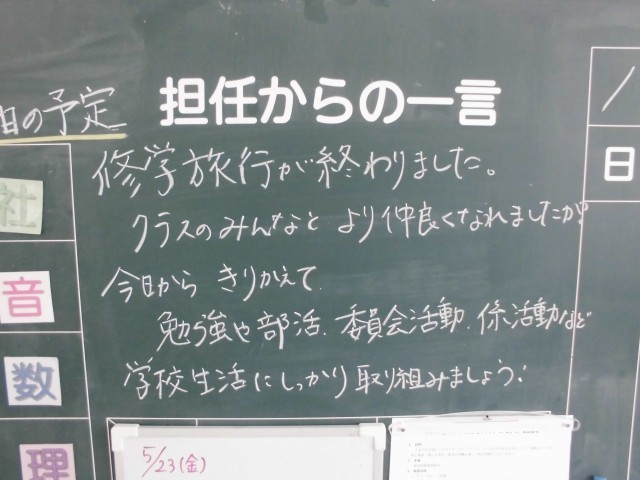 担任からの一言
日の予定
修学旅行が終わりました。
クラスのみんなと より仲良くなれましたか?
今日から きりかえて
勉強や部活、委員会活動、係活動など
学校生活にしっかり取り組みましょう!
社
音
数
理
日
5/23(金)